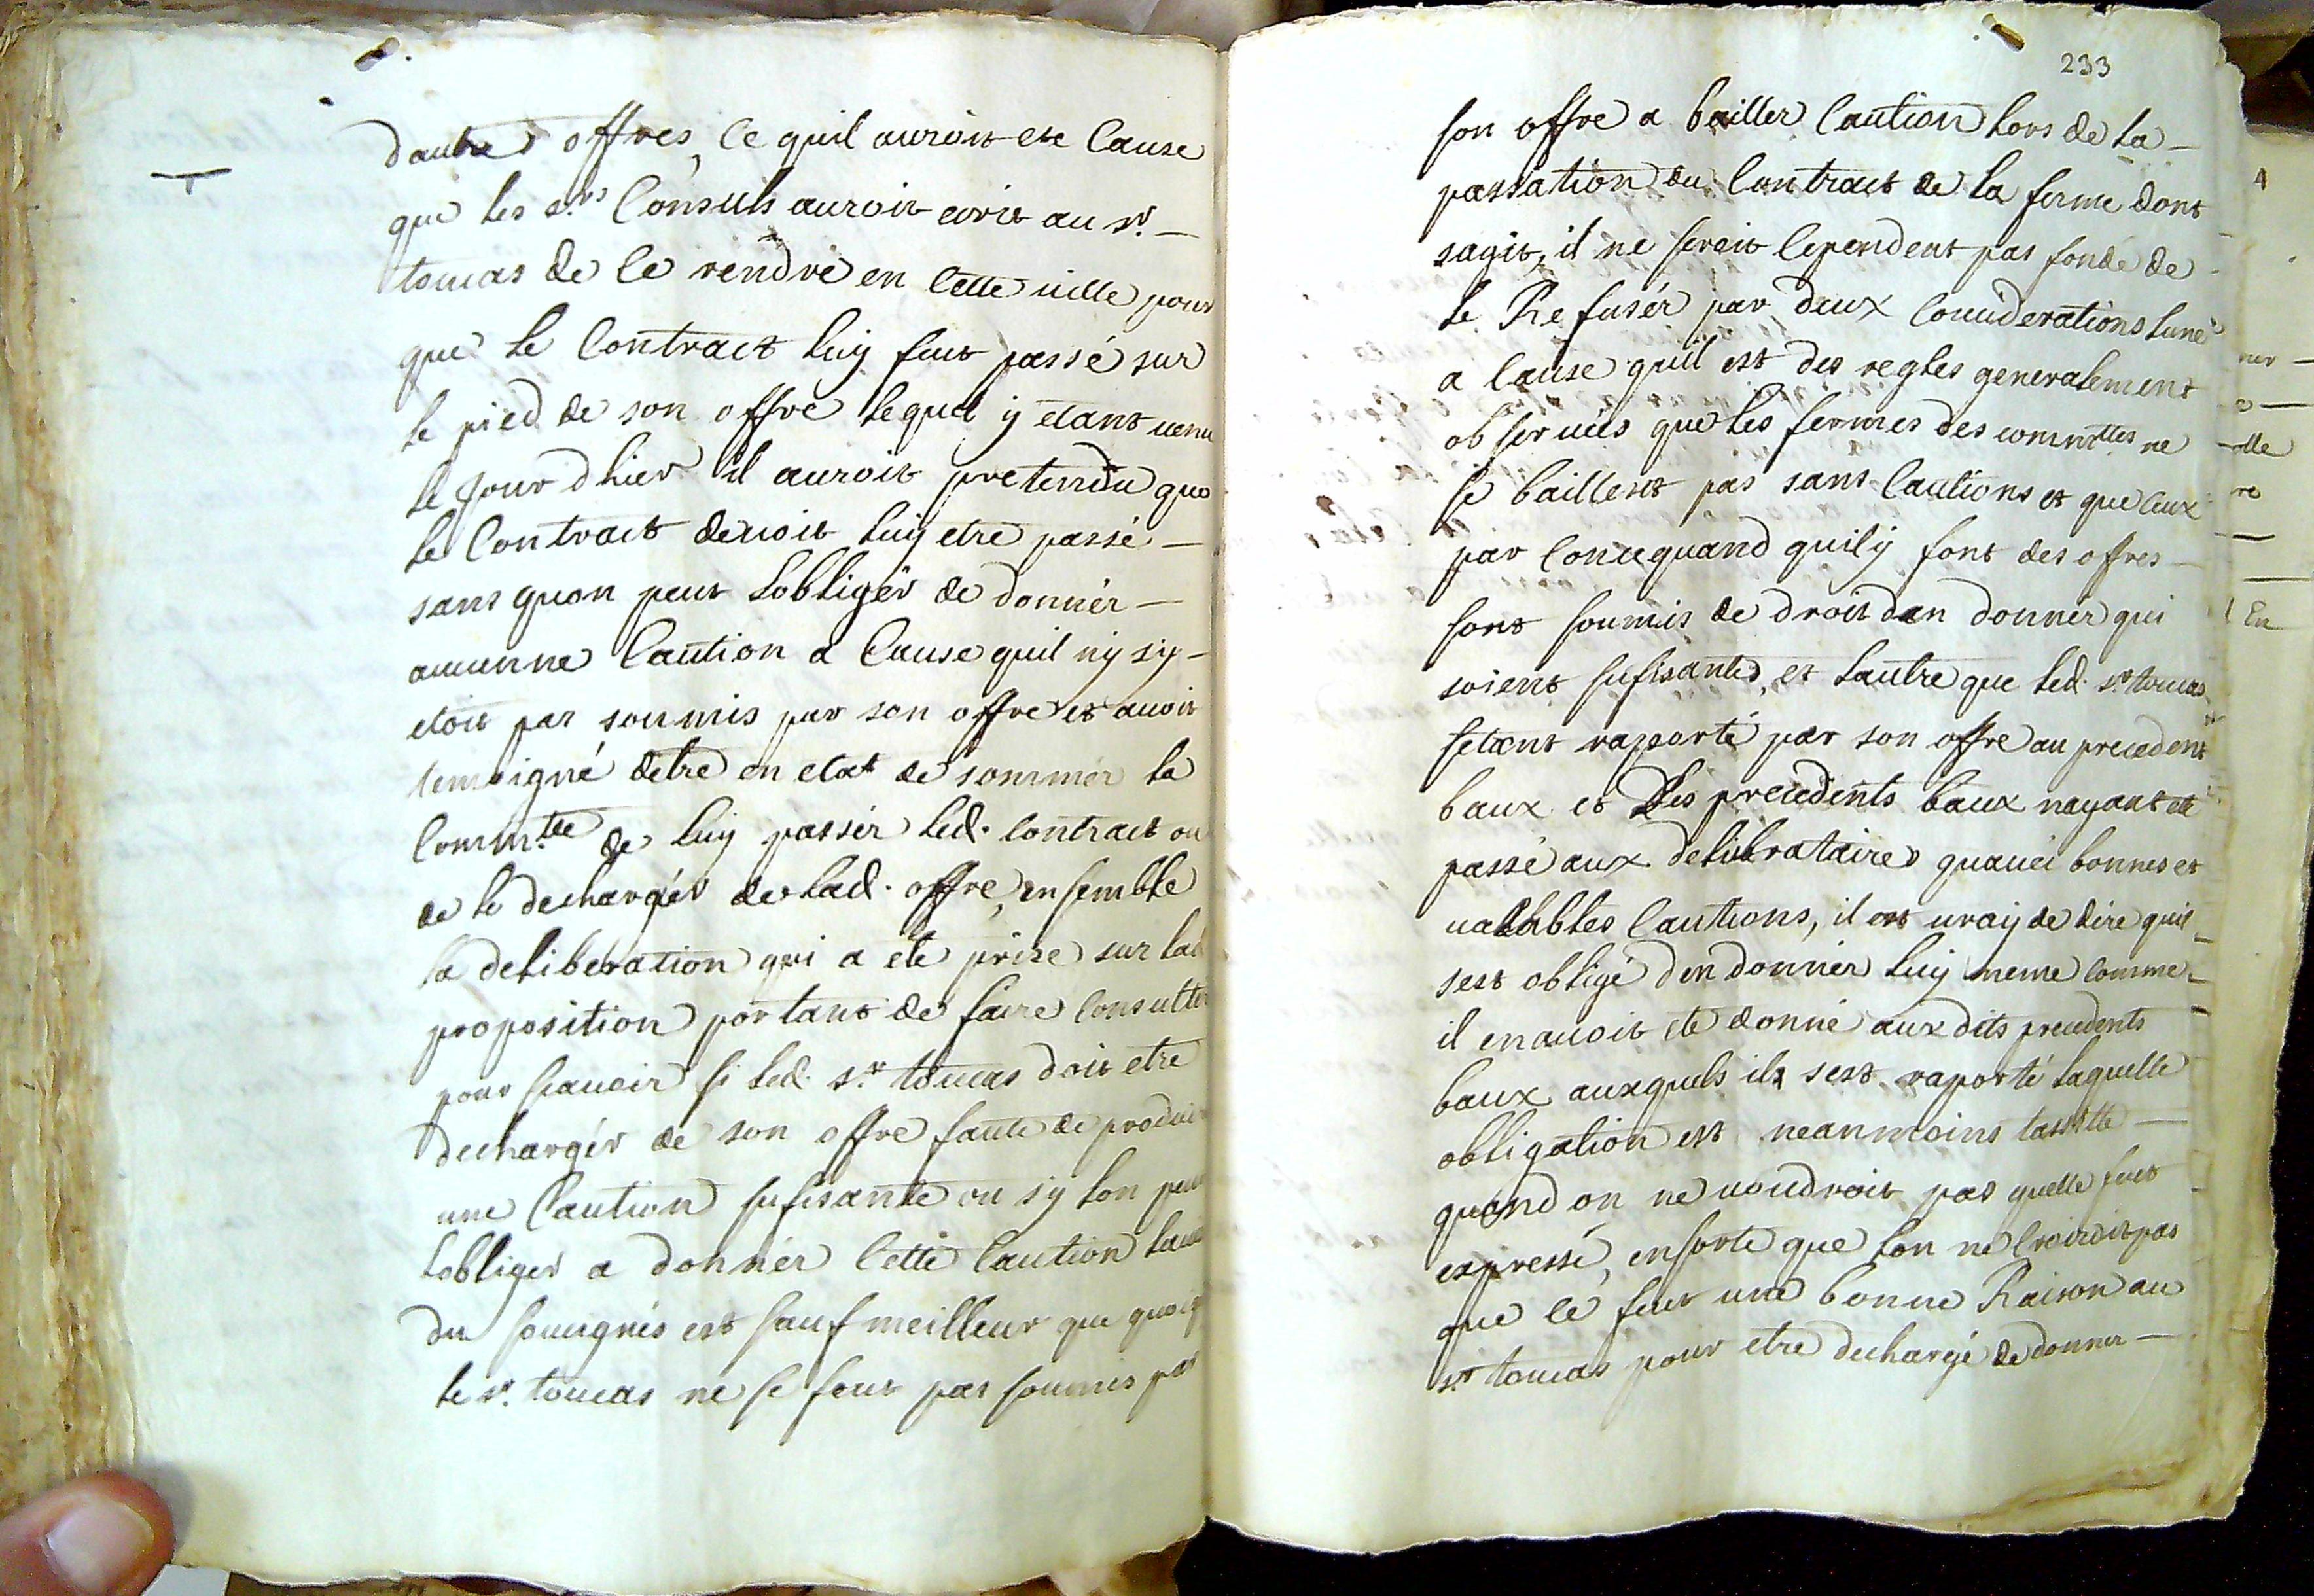 dautres offres, ce quil auroit ete cause
que les srs Consuls auroit ecrit au sr.
toucas de ce rendre en cette uille pour
que le Contract luy feut passé sur
le pied de son offre lequel y etant uenu
le jour dhier il auroit pretendu que
le Contract deuoit luy etre passé
sans quon peut lobliger de donnér
aucunne Caution a Cause quil ny sy
etoit pas soumis par son offre et auoit
temoigné detre en etat de sommér la
Comm.tté de luy passér led. contract ou
de le dechargér de lad. offre, ensemble
la deliberation qui a eté prise sur lad
proposition portant de faire Consulter
pour scauoir si led. sr. toucas doit etre
dechargér de son offre faute de produire
une Caution sufisante ou sy lon peut
lobliger a donnér Cette Caution
du sousignés est sauf meilleur que quoique
le sr. toucas ne se feut pas soumis par
233
son offre a bailler Caution lors de la
passation du Contract de la ferme dont
sagit, il ne seroit Cependent pas fondé de
le Refusér par deux Considerations lune
a Cause quil est des regles generalement
obseruées que les fermes des commttés ne
se baillent pas sans Cautions et que Ceux
par Consequand quily font des offres
sont soumis de droit den donnér qui
soient sufisantes, et lautre que led. sr toucas
setant raporté par son offre au precedent
baux et Les precedents baux nayant eté
passé aux deliberataires quauec bonnes et
ualables Cautions, il est uray de dire quil
sest obligé den donnér luy meme comme
il en auoit eté donné aux dits precedents
baux auxquels il sest raporté laquelle
obligation est neanmoins tassitte
quand on ne uoudroit pas quelle feut
expresse, ensorte que lon ne Croiroit pas
que Ce feut une bonne Raison au
sr toucas pour etre dechargé de donner
ner
elle
re
En